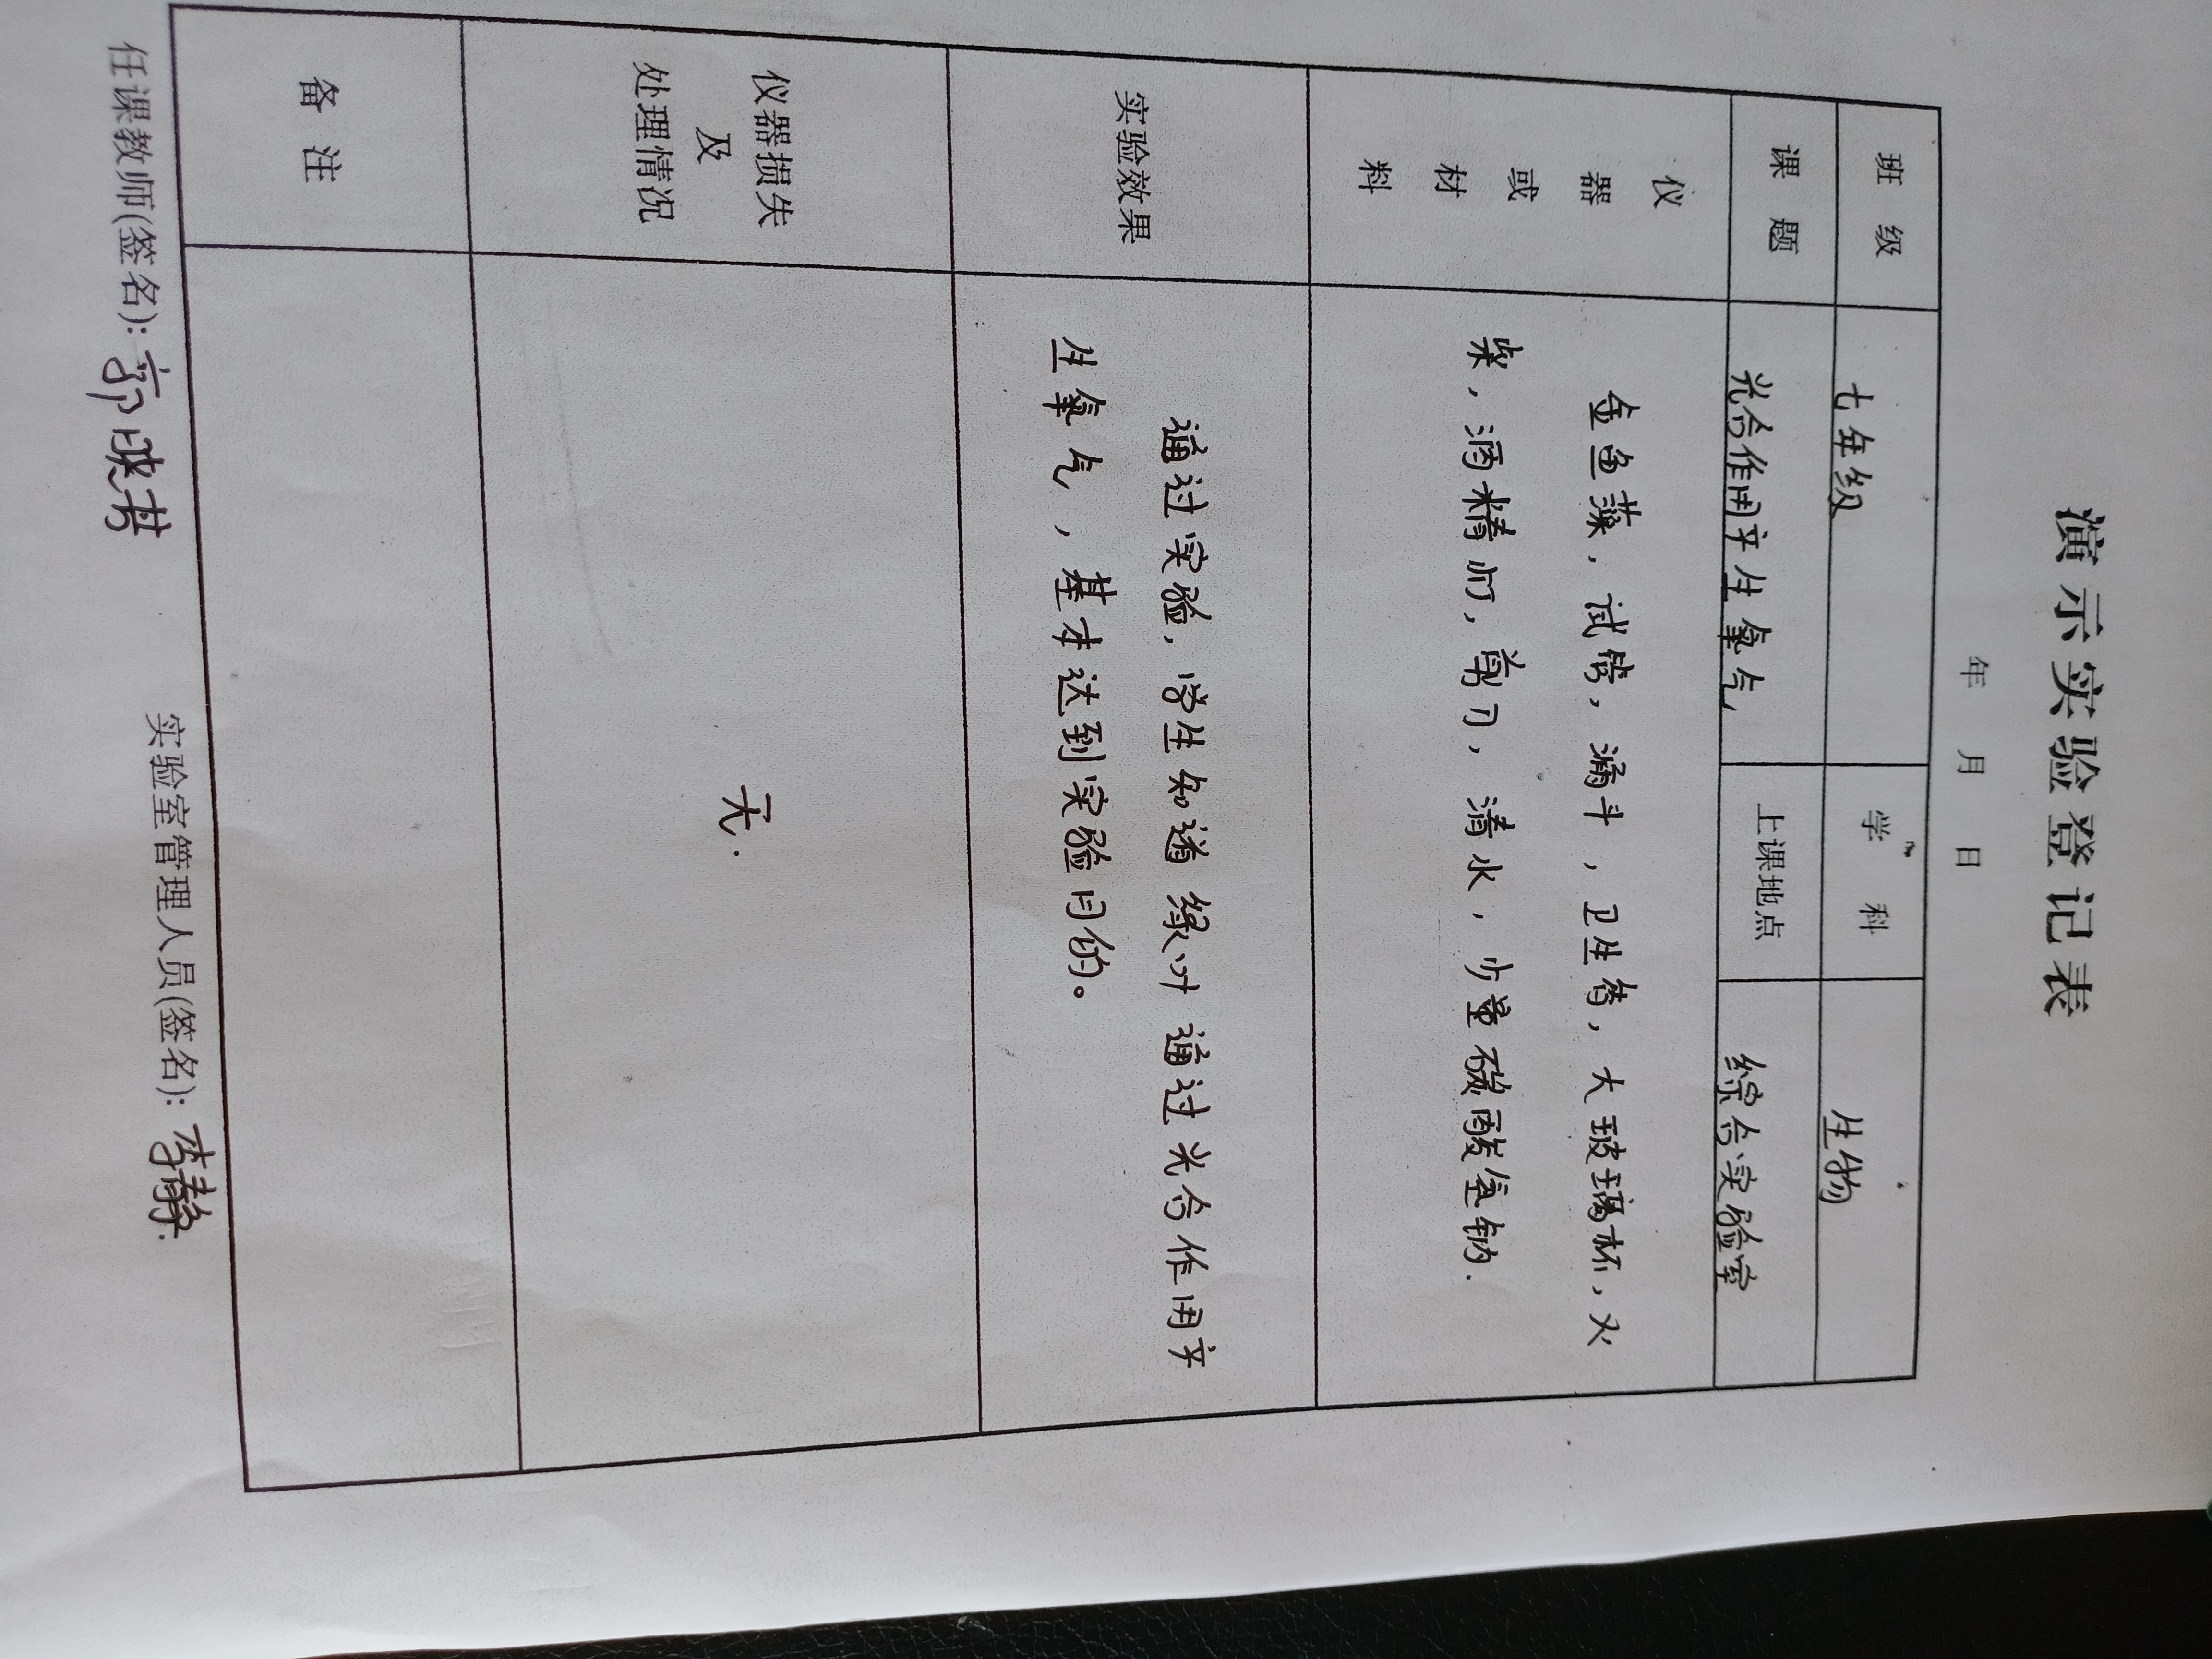 演示实验登记表
年 月 日
班 级 七年级 学 科 生物
课 题 光合作用产生氧气 上课地点 综合实验室
仪器或材料
金鱼藻，试管，漏斗，卫生香，大玻璃杯，火
柴，酒精灯，剪刀，清水，少量碳酸氢钠.
实验效果
通过实验，学生知道绿叶通过光合作用产
生氧气，基本达到实验目的。
仪器损失
及
处理情况
无.
备 注
任课教师(签名): 郭映 实验室管理人员(签名): 李静.